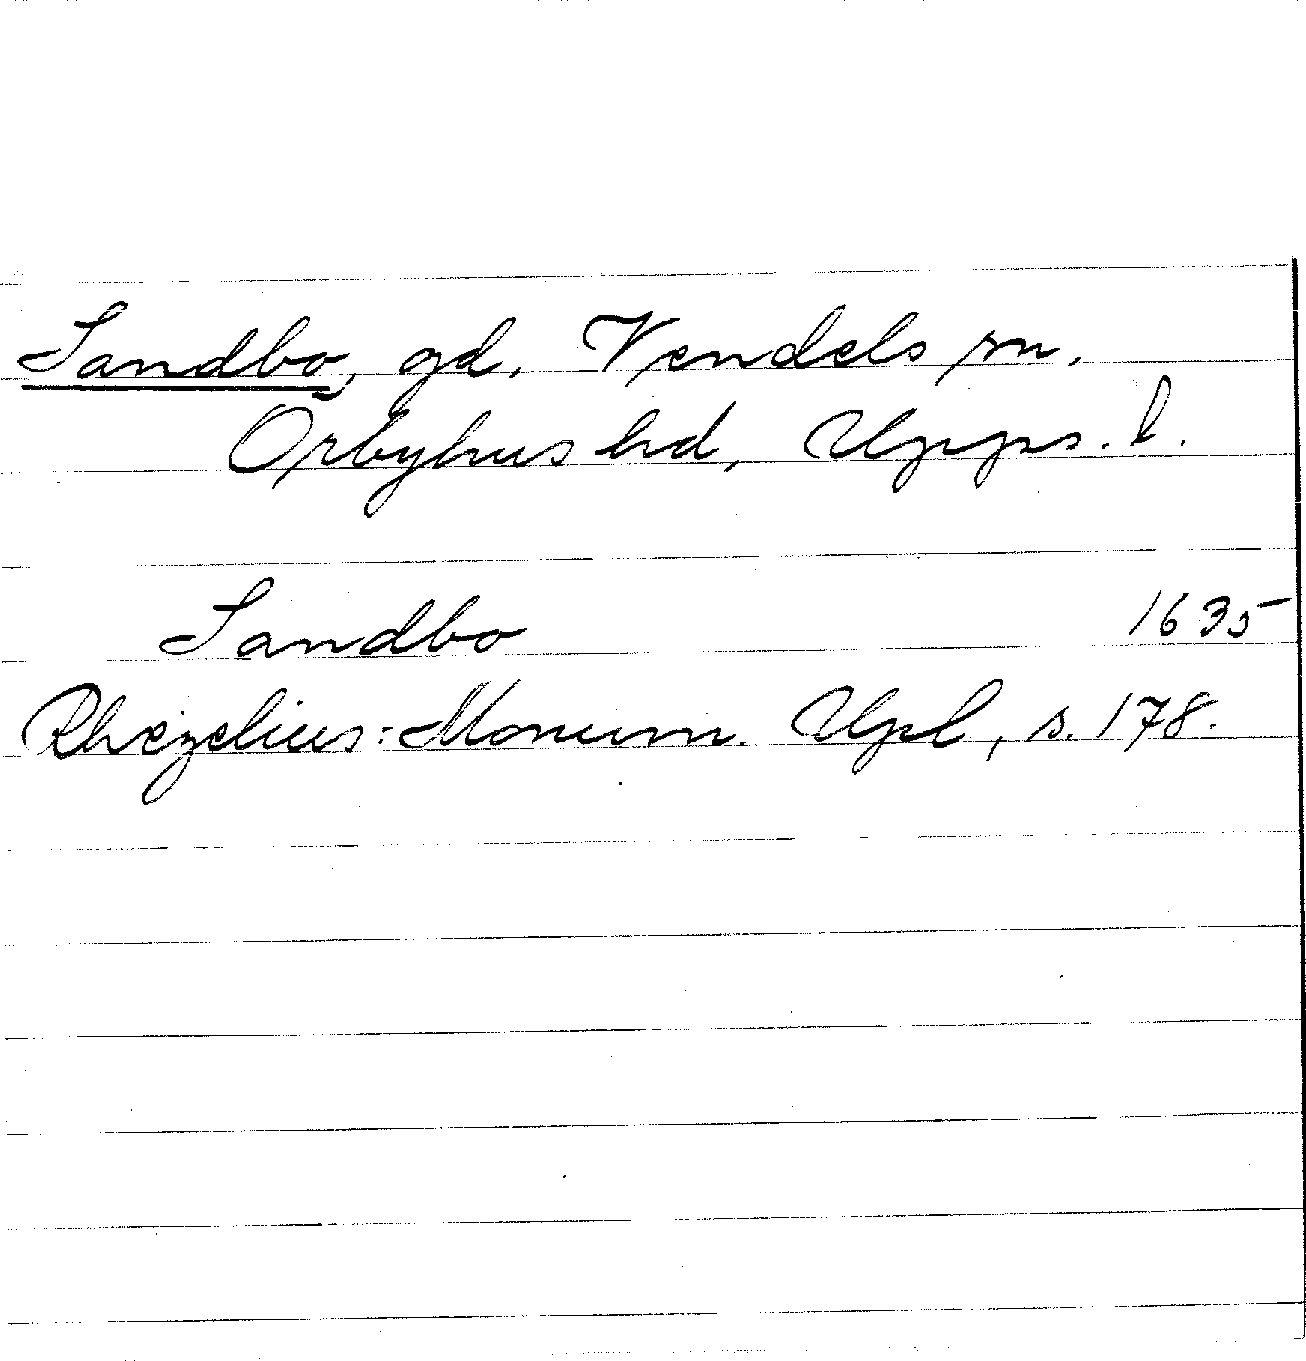 Sandbo, gd. Vendels sn.
Örbyhus hd, Upps. l.
Sandbo 1635
Rhezelius: Monum. Upl, s. 178.